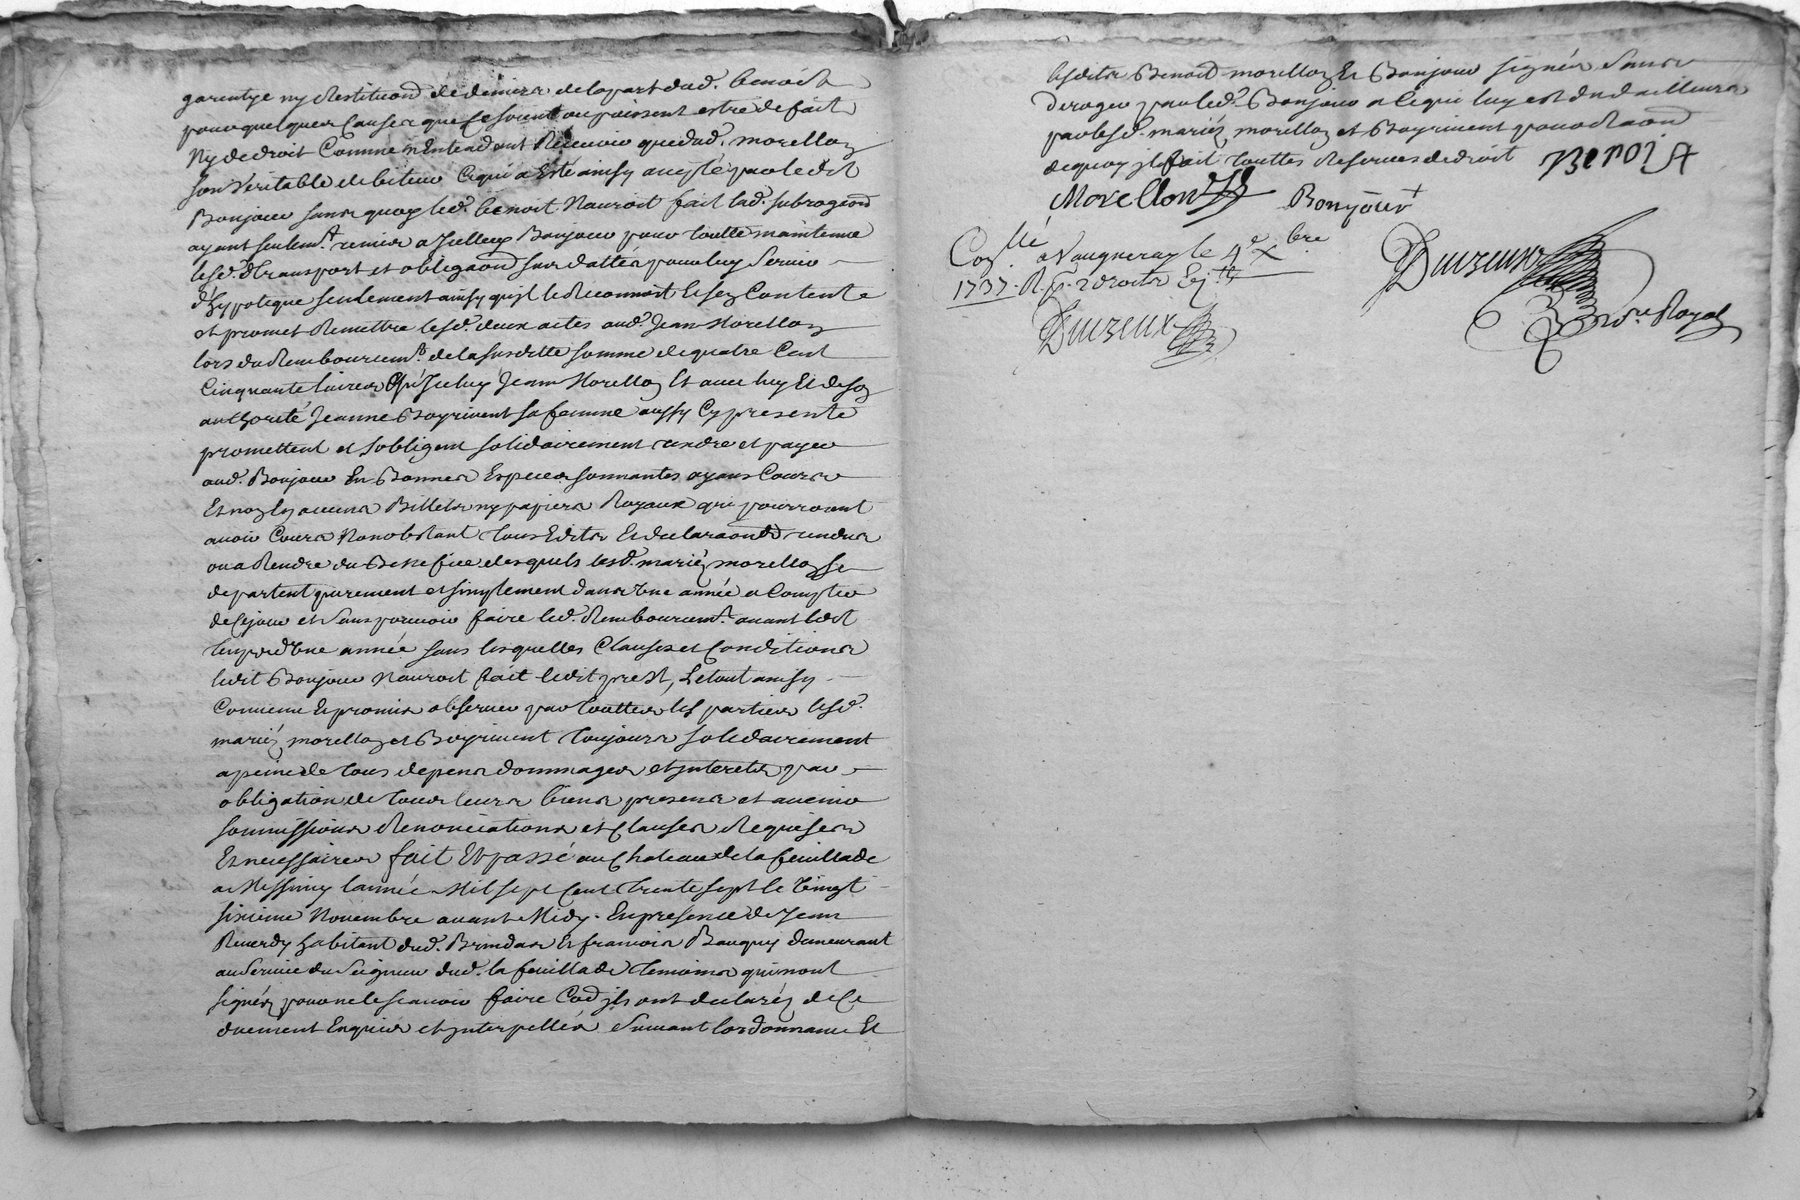 garentye ny Restituon̄ de deniers de la part dud. benoist
pour quelques Causes que Ce soient ou puissent estre de fait
Ny de droit Comme nEntendant Recevoir que dud. morellon
son Veritable debiteur Ce qui a Esté ainsy accepté par ledit
Bonjour sans quoy led. benoit Nauroit fait lad. subrogaon̄
ayant seulemt. remis a Jcelluy Bonjour pour toutte maintenue
lesd. transport et obligaon̄ sus dattés pour luy Servir
d'hypoteque seulement ainsy quil le Reconnoit Et sen Contente
et promet Remettre lesd. deux actes aud. Jean Morellon
lors du Remboursemt. de la susditte somme de quatre Cent
Cinquante livres Que Jceluy Jean Morellon Et avec luy Et de son
authorité Jeanne Boyrivent sa femme aussy Cy presente
promettent et sobligent solidairement rendre et payer
aud. Bonjour En Bonnes Especes sonnantes ayans Cours
Et non En aucuns Billets ny papiers Royaux qui pourroient
avoir Cours Nonobstant tous Edits Et declaraons̄ rendus
ou a Rendre du Benefice desquels lesd. mariés morellon se
departent purement et simplement dans Une année a Compter
de Ce jour et sans pouvoir faire led. Remboursemt. avant ledit
temps d'Une année sans lesquelles Clauses et Conditions
ledit Bonjour Nauroit fait ledit prest, Le tout ainsy
Convenu Et promis observer par touttes les parties lesd.
mariés morellon et Boyrivent toujours solidairement
a peine de tous depens dommages et Jnterets par
obligation de tous leurs biens presens et avenir
soumissions Renonciations et Clauses Requises
Et necessaires fait Et passé au Chateau de la feuillade
a Messimy lannée Mil sept Cent trente sept le Vingt
sixieme Novembre avant Midy. En presence de Jean
Reverdy habitant dud. Brindas Et francois Bouquy demeurant
au service du Seigneur dud. la feuillade temoins qui nont
signés pour ne le scavoir faire Co͞e Jls ont declarés de Ce
duement Enquis et Jnterpellés suivant lordonnance Et
lesdits Benoit morellon Et Bonjour signés sans
deroger par led. Bonjour a Ce qui luy est du dailleurs
par lesd. mariés morellon et Boyrivent
de quoy Jl fait touttes Reserves de droit BENOIST
Morellon Bonjour
Conlle a Vaugneray le 4e Xbre
1737. R
Duizeux
Duizeux
Nore Royal